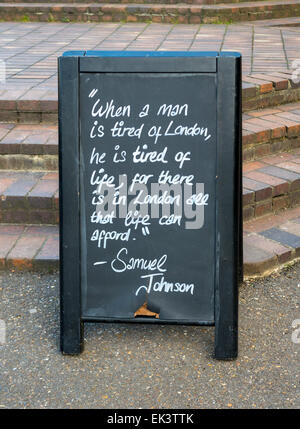 "When a man
is tired of London,
he is tired of
life, for there
is in London all
that life can
afford."
- Samuel
Johnson
alamy
a
a
a
www.alamy.com - EK3TTK